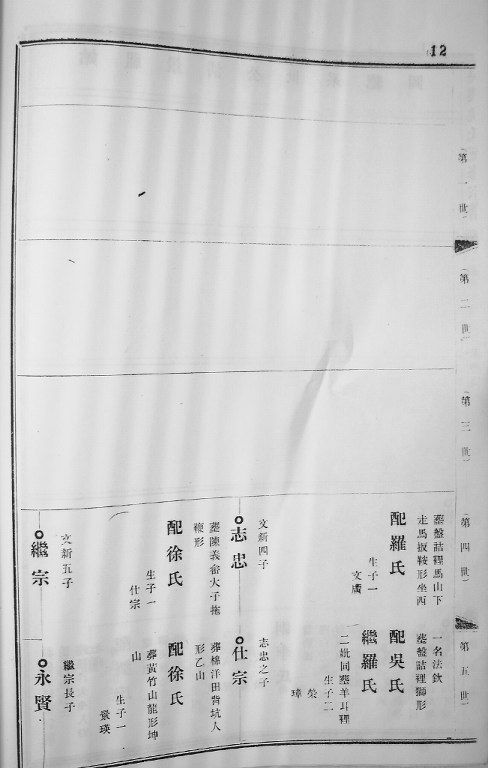 12
(第一世)
(第二世)
(第三世)
(第四世)
葬盤詰裡馬山下
走馬扳鞍形坐西
配羅氏
生子一
文廣
文新四子
志忠
葬陳義畲大子拖
鞭形
配徐氏
生子一
仕宗
文新五子
繼宗
(第五世)
一名法欽
葬盤詰裡獅形
配吳氏
繼羅氏
二妣同葬羊斗裡
生子二
榮
璋
志忠之子
仕宗
葬樣洋田背坑人
形乙山
配徐氏
葬黃竹山龍形坤
山
生子一
景瑛
繼宗長子
永賢